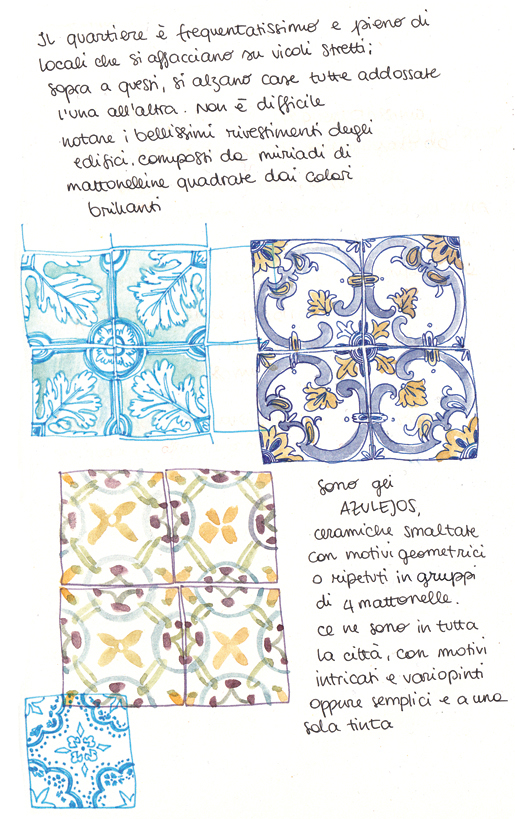 Il quartiere è frequentatissimo e pieno di
locali che si affacciano su vicoli stretti;
sopra a questi, si alzano case tutte addossate
l'una all'altra. Non è difficile
notare i bellissimi rivestimenti degli
edifici, composti da miriadi di
mattonelline quadrate dai colori
brillanti
sono gli
AZULEJOS,
ceramiche smaltate
con motivi geometrici
o ripetuti in gruppi
di 4 mattonelle.
ce ne sono in tutta
la città, con motivi
intricati e variopinti
oppure semplici e a una
sola tinta